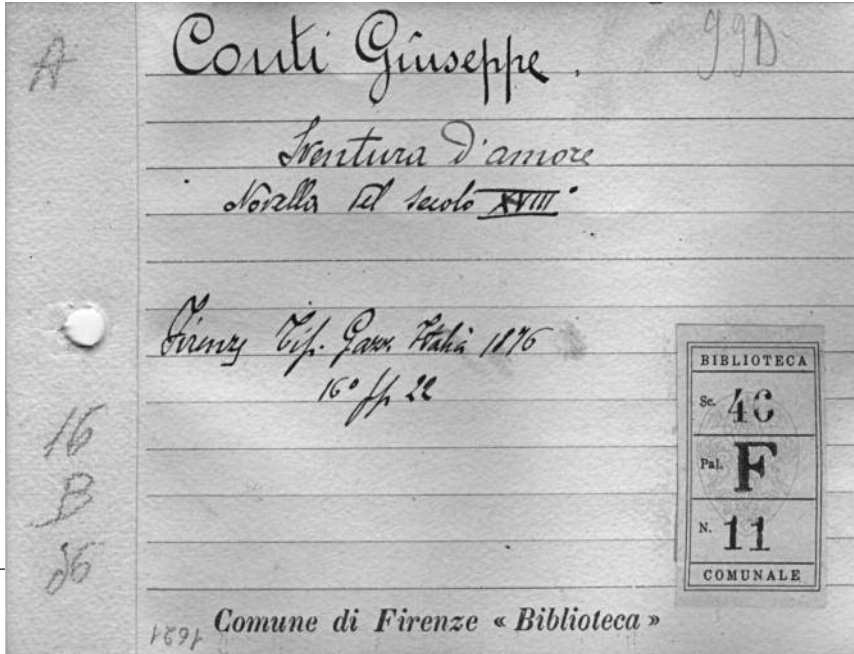 A
Conti Giuseppe.
99D
Sventura d'amore
Novella del secolo XVIII°
Firenze Tip. Gazz. Italia 1876
16° pp. 22
16
B
36
BIBLIOTECA
Sc. 46
Pal. F
N. 11
COMUNALE
Comune di Firenze « Biblioteca »
1621